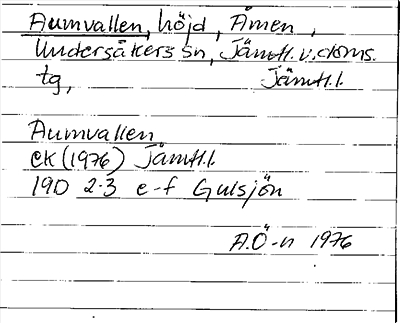 Aumvallen, höjd, Åmen,
Undersåkers sn, Jämtl. v. doms.
tg, Jämtl. l.
Aumvallen
EK (1976) Jämtl. l.
19D 2-3 e-f Gulsjön
A.Ö-n 1976